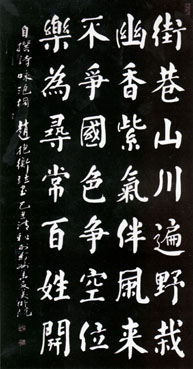 街巷山川遍野栽
幽香紫氣伴風來
不爭國色争空位
樂為尋常百姓開
自撰詩咏泡桐